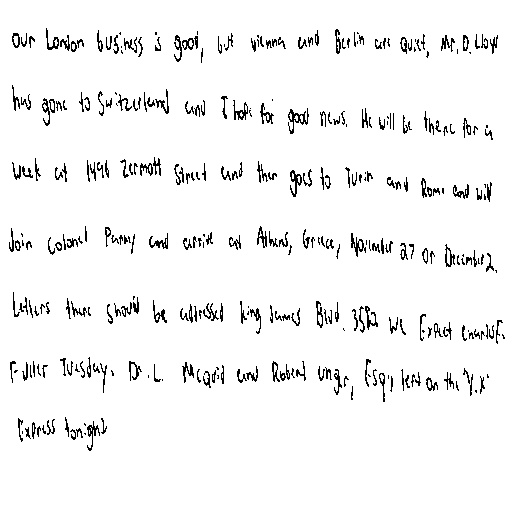 our London business is good, but vienna and Berlin are quiet, Mr. D. Lloyd
has gone to Switzerland and I hope for good news. He will be there for a
week at 1496 Zermott street and then goes to Turin and Rome and will
Join colonel Parry and arrive at Athens, Greece, November 27 or December 2.
Letters there should be addressed King James Blvd. 3580 we Expect
Fuller Tuesday. Dr. L. McQuid and Robert unger, Esq., left on the "Y.X"
Express tonight